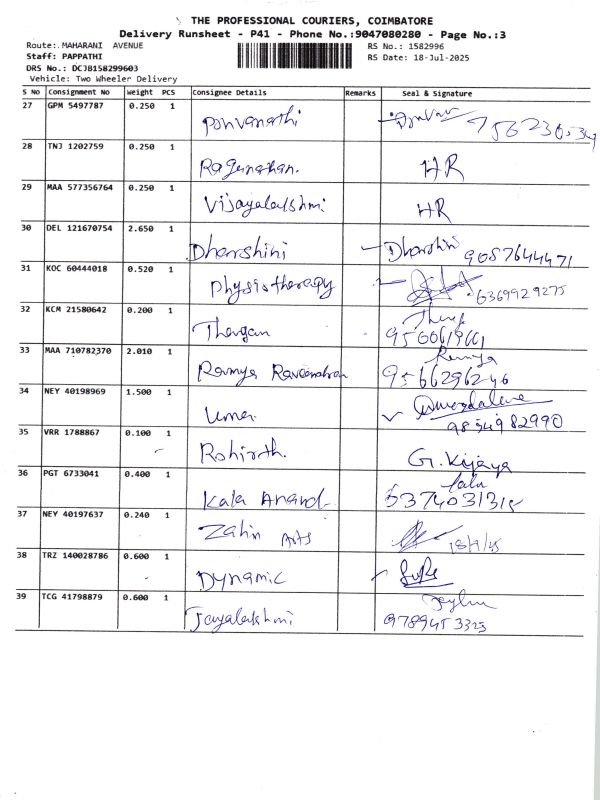 THE PROFESSIONAL COURIERS, COIMBATORE
Delivery Runsheet - P41 - Phone No.:9047080280 - Page No.:3
Route: MAHARANI AVENUE RS No.: 1582996
Staff: PAPPATHI RS Date: 18-Jul-2025
DRS No.: DCJB158299603
Vehicle: Two Wheeler Delivery
S No Consignment No Weight PCS Consignee Details Remarks Seal & Signature
27 GPM 5497787 0.250 1
28 TNJ 1202759 0.250 1
Ragunathan. HR
29 MAA 577356764 0.250 1
Vijayalakshmi HR
30 DEL 121670754 2.650 1
Dharshini Dharshini 9087644471
31 KOC 60444018 0.520 1
physiotherapy 6369929275
32 KCM 21580642 0.200 1
33 MAA 710782370 2.010 1
Ramya
Ramya Raveendran 9566296246
34 NEY 40198969 1.500 1
Uma
9854982990
35 VRR 1788867 0.100 1
Rohirth. G. Kijaya
36 PGT 6733041 0.400 1
Kala Anand
37 NEY 40197637 0.240 1
Zahin Arts
38 TRZ 140028786 0.600 1
Dynamic
39 TCG 41798879 0.600 1
Jayalakshmi 9789453325